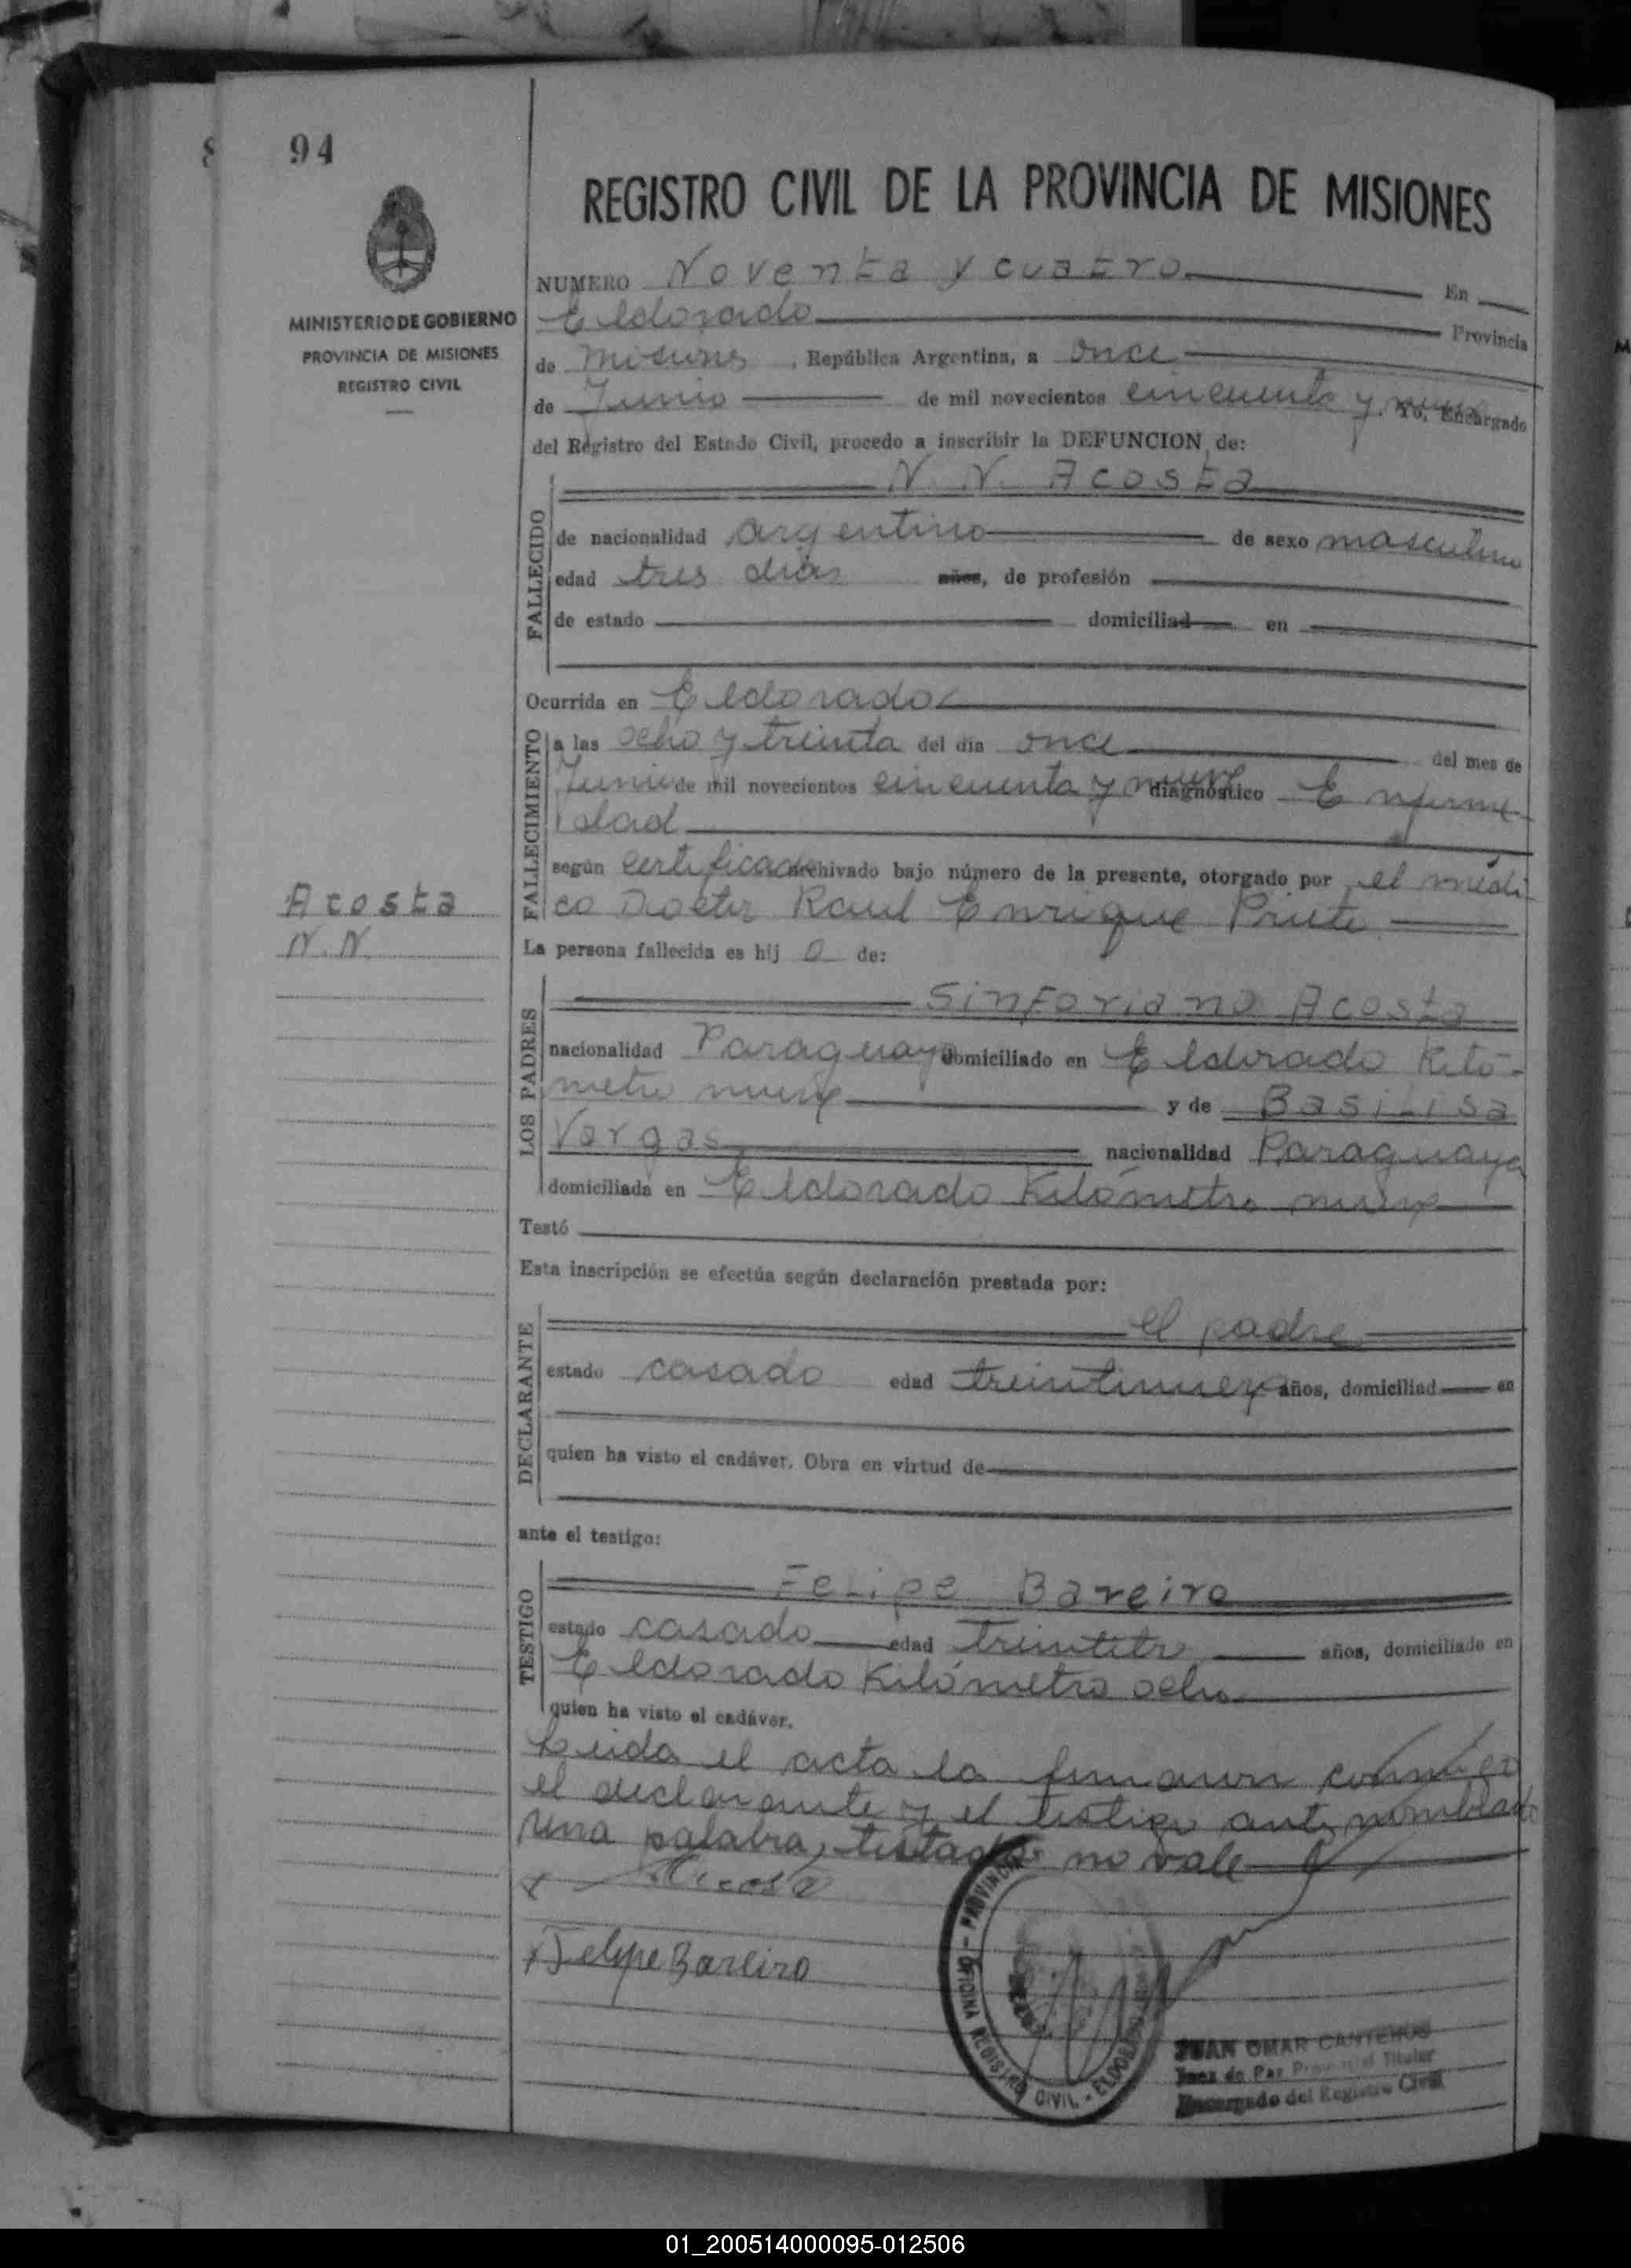 94
REGISTRO CIVIL DE LA PROVINCIA DE MISIONES
MINISTERIO DE GOBIERNO
PROVINCIA DE MISIONES
REGISTRO CIVIL
NUMERO Noventa y cuatro En
Eldorado Provincia
de Misiones, República Argentina, a once
de Junio de mil novecientos cincuenta y nueve. Yo, Encargado
del Registro del Estado Civil, procedo a inscribir la DEFUNCION de:
FALLECIDO
N. N. Acosta
de nacionalidad argentino de sexo masculino
edad tres días años, de profesión
de estado domiciliad en
Ocurrida en Eldorado
FALLECIMIENTO
a las ocho y treinta del día once del mes de
Junio de mil novecientos cincuenta y nueve diagnóstico Enferme
dad
según certificado archivado bajo número de la presente, otorgado por el médi-
co Doctor Raul Enrique
Acosta
N. N.
La persona fallecida es hij o de:
LOS PADRES
Sinforiano Acosta
nacionalidad Paraguayo domiciliado en Eldorado Kiló-
metro nueve y de Basilisa
Vargas nacionalidad Paraguaya
domiciliada en Eldorado Kilómetro nueve
Testó
Esta inscripción se efectúa según declaración prestada por:
DECLARANTE
el padre
estado casado edad treintinueve años, domiciliad en
quien ha visto el cadáver. Obra en virtud de
ante el testigo:
TESTIGO
Felipe Bareiro
estado casado edad años, domiciliado en
Eldorado Kilómetro ocho
quien ha visto el cadáver.
Leida el acta la firmaron
el declarante y el testigo antes nombrado
una palabra, testada: no vale
x Acosta
x Felipe Bareiro
OFICINA REGISTRO CIVIL - ELDORADO
PROVINCIA
JUAN OMAR CANTEROS
Juez de Paz Provincial Titular
Encargado del Registro Civil
01_200514000095-012506